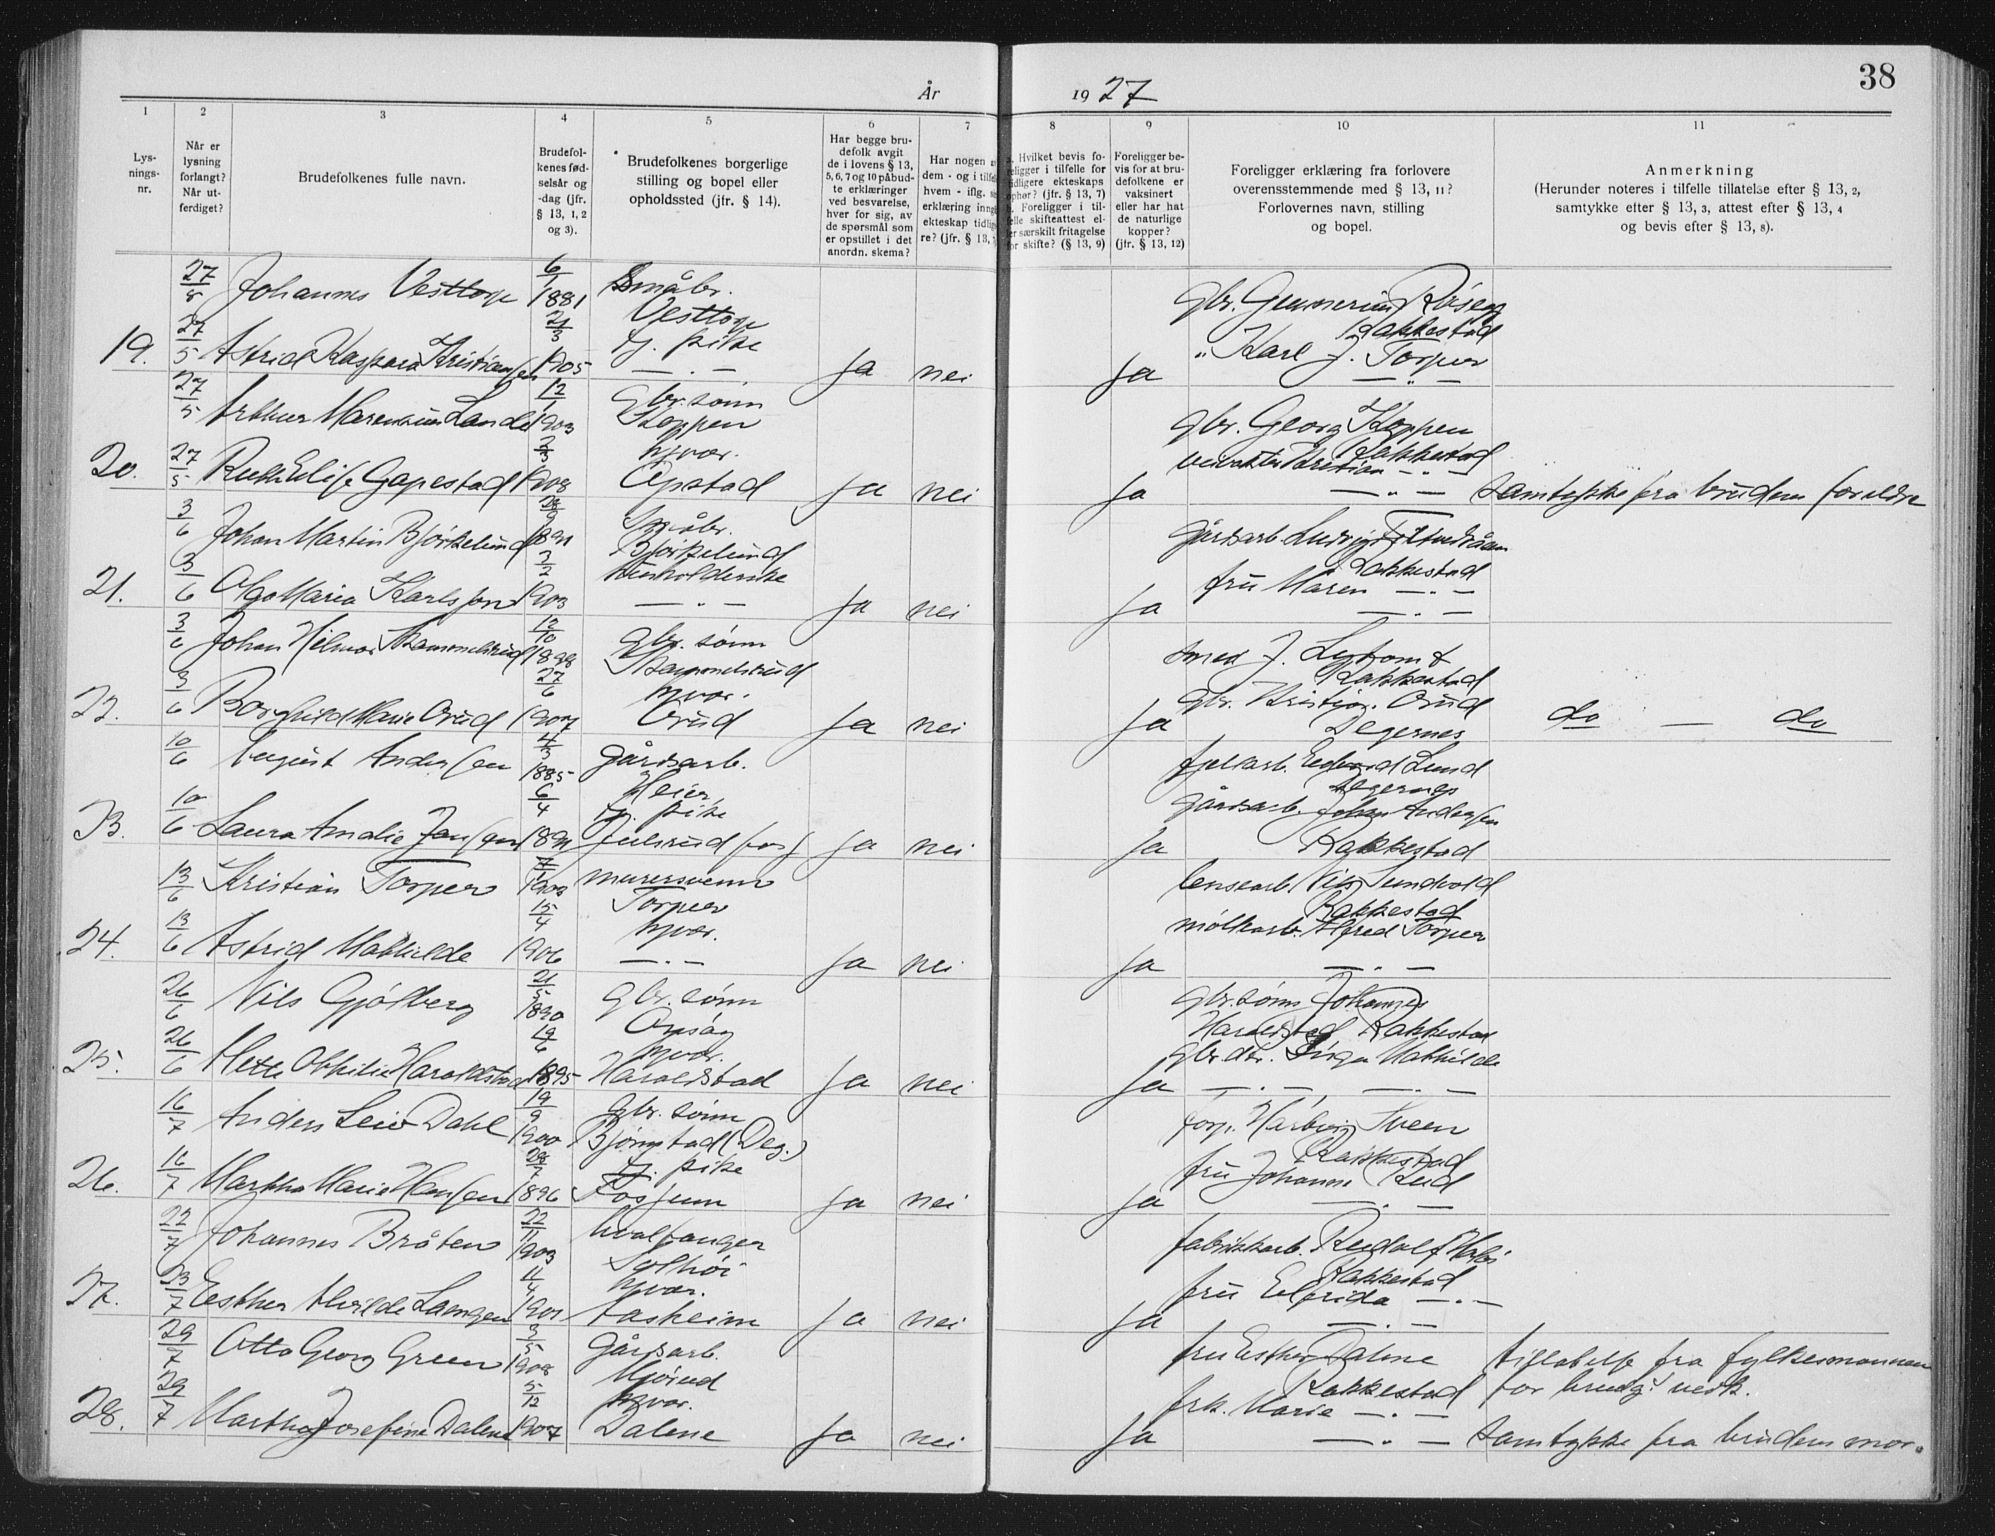 38
År 1927
1 2 3 4 5 6 7 8 9 10 11
Lysnings-
nr.
Når er
lysning
forlangt?
Når ut-
ferdiget?
Brudefolkenes fulle navn.
Brudefol-
kenes fød-
selsår og
-dag (jfr.
§ 13, 1, 2
og 3).
Brudefolkenes borgerlige
stilling og bopel eller
opholdssted (jfr. § 14).
Har begge bru-
defolk avgit
de i lovens § 13,
5, 6, 7 og 10 påbud-
te erklæringer
ved besvarelse,
hver for sig, av
de spørsmål som
er opstillet i det
anordn. skema?
Har nogen
dem - og i
hvem - iflg.
erklæring
ekteskap
re? (jfr. § 13,
Hvilket bevis fo-
religger i tilfelle for
tidligere ekteskaps
ophør? (jfr. § 13, 7)
Foreligger i til-
felle skifteattest el-
ler særskilt fritagelse
for skifte? (§ 13, 9)
Foreligger be-
vis for at bru-
defolkene er
vaksinert
eller har hat
de naturlige
kopper?
(jfr. § 13, 12)
Foreligger erklæring fra forlovere
overensstemmende med § 13, 11?
Forlovernes navn, stilling
og bopel.
Anmerkning
(Herunder noteres i tilfelle tillatelse efter § 13, 2,
samtykke efter § 13, 3, attest efter § 13, 4
og bevis efter § 13, 8).
27/8 Johannes Vesttorp 1881 Småbr. Vesttorp gbr. Rakkestad
19. 27/5 Astrid Kaspara Kristiansen 21/3 1905 hj. pike — " — Ja nei Ja " Karl J. Torper — " —
27/5 Arthur Lande 12/1 1903 gbr. sønn Koppen gbr. Georg Koppen Rakkestad
20. 27/5 Ruth Elise Gapestad 1908 hjvær. Ja nei Ja Kristian — " — Samtykke fra brudens foreldre
3/6 Johan Martin Bjørkelund 28/9 1891 Småbr. Bjørkelund gårdsarb. Ludvig Rakkestad
21. 3/6 Olga Maria Karlsson 2/2 1903 husholderske — " — Ja nei Ja fru Maren — " —
3/6 Johan Hilmar 12/10 1898 gbr. sønn smed J. Rakkestad
22. 3/6 Borghild Marie Orud 27/6 1907 hjvær. Orud Ja nei Ja gbr. Kristian Orud Degernes do — do
10/6 August Andersen 4/3 1885 gårdsarb. Heier fjelkarb. Edvard Lund Degernes
23. 10/6 Laura Amalie Jansen 6/4 1891 hj. pike Julsrud Ja nei Ja gårdsarb. Johan Andersen Rakkestad
13/6 Kristian Torper murersvenn Torper lensearb. Nils Sundvold Rakkestad
24. 13/6 Astrid Mathilde 15/4 1906 hjvær. — " — Ja nei Ja møllearb. Alfred Torper — " —
26/6 Nils Gjølberg 21/5 1890 gbr. sønn Opsøg gbr. sønn Johannes Haraldstad Rakkestad
25. 26/6 Mette Othilie Haraldstad 19/6 1895 hjvær. Haraldstad Ja nei Ja gbr. dtr. Mathilde — " — — " —
16/7 Anders Leiv Dahl 19/9 1900 gbr. sønn Bjørnstad (Deg.) Sveen Rakkestad
26. 16/7 Martha Marie Hansen 28/7 1896 hj. pike Fosjum Ja nei Ja fru Johanne — " —
22/7 Johannes Bråten 22/11 1903 hvalfanger Solhøi fabrikkarb. Rudolf Rakkestad
27. 23/7 Esther Alvilde Langen 11/4 1901 hjvær. Aasheim Ja nei Ja fru Elfrida — " — — " —
29/7 Otto Georg Green 3/5 1908 gårdsarb. fru Esther Dalene Rakkestad tillatelse fra fylkesmannen for brudg. vedk.
28. 29/7 Martha Josefine Dalene 5/12 1907 hjvær. Dalene Ja nei Ja frk. Marie — " — — " — Samtykke fra brudens mor.